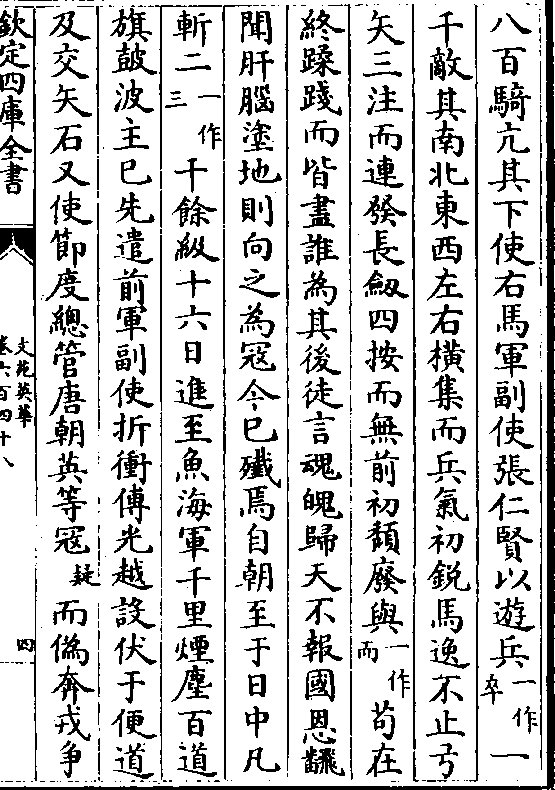 八百騎亢其下使右馬軍副使張仁賢以遊兵一作卒一
千敵其南北東西左右橫集而兵氣初銳馬逸不止弓
矢三注而連發長劔四按而無前初頹廢與一作而苟在
終蹂踐而皆盡誰為其後徒言魂魄歸天不報國恩飜
聞肝腦塗地則向之為寇今已殱焉自朝至于日中凡
斬二一作三千餘級十六日進至魚海軍千里煙塵百道
旗鼓波主已先遣前軍副使折衝傅光越設伏于便道
及交矢石又使節度總管唐朝英等寇疑而僞奔戎争
欽定四庫全書
文苑英華
卷六百四十八
四